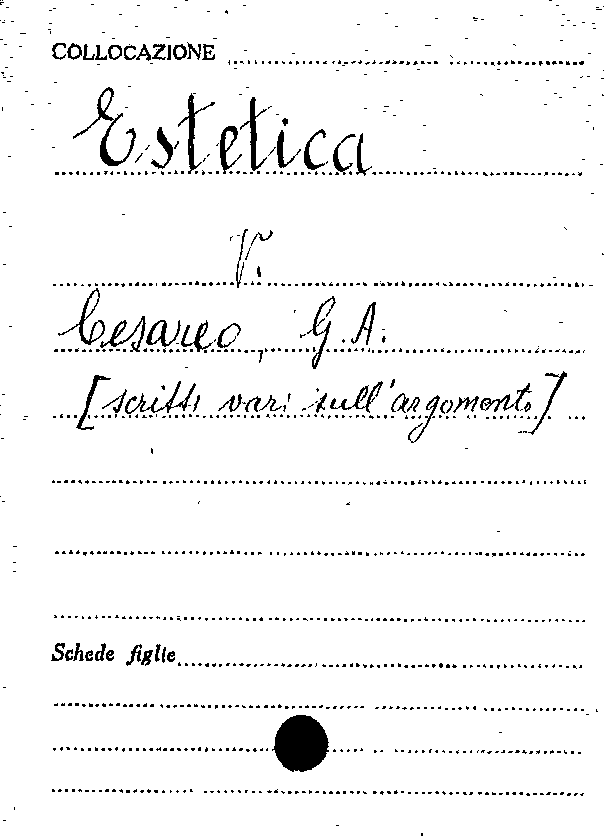 COLLOCAZIONE
Estetica
V.
Cesareo, G. A.
[scritti vari sull'argomento]
Schede figlie